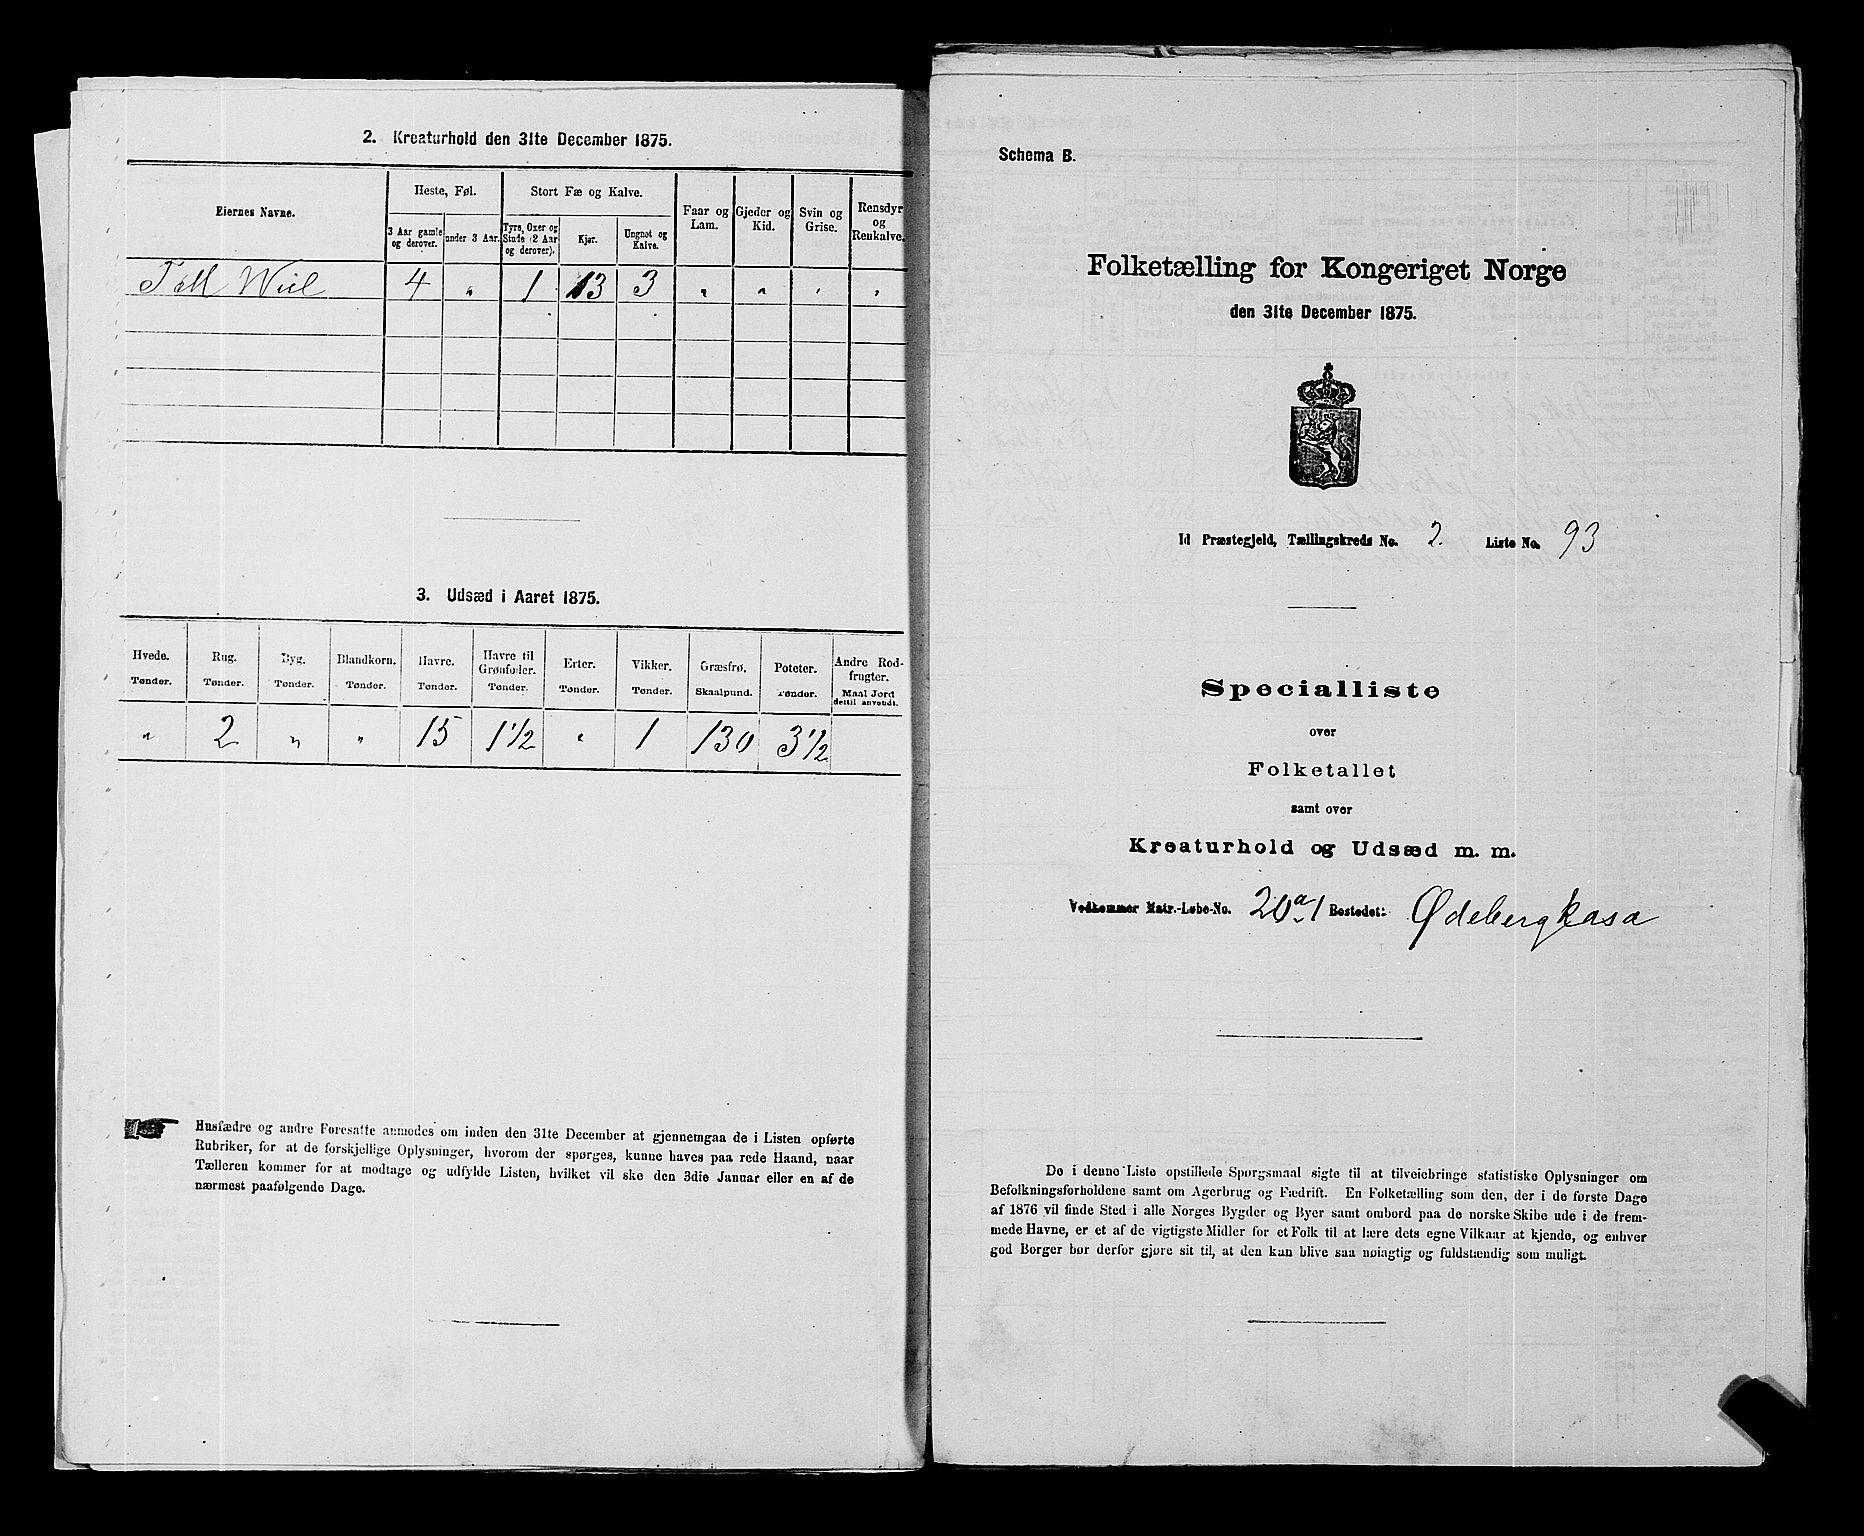 2. Kreaturhold den 31te December 1875.
Eiernes Navne.
Heste, Føl.
Stort Fæ og Kalve.
Faar og Lam.
Gjeder og Kid.
Svin og Grise.
Rensdyr og Renkalve.
3 Aar gamle og derover.
under 3 Aar.
Tyre, Oxer og Stude (2 Aar og derover).
Kjør.
Ungnøt og Kalve.
Wiel 4 " 1 13 3 " " " "
3. Udsæd i Aaret 1875.
Hvede. Rug. Byg. Blandkorn. Havre. Havre til Grønfoder. Erter. Vikker. Græsfrø. Poteter. Andre Rodfrugter.
Tønder. Tønder. Tønder. Tønder. Tønder. Tønder. Tønder. Tønder. Skaalpund. Tønder. Maal Jord dertil anvendt.
" 2 " " 15 1 1/2 " 1 130 3 1/2
Husfædre og andre Foresatte anmodes om inden den 31te December at gjennemgaa de i Listen opførte
Rubriker, for at de forskjellige Oplysninger, hvorom der spørges, kunne haves paa rede Haand, naar
Tælleren kommer for at modtage og udfylde Listen, hvilket vil ske den 3die Januar eller en af de
nærmest paafølgende Dage.
Schema B.
Folketælling for Kongeriget Norge
den 31te December 1875.
Id Præstegjeld, Tællingskreds No. 2. Liste No. 93
Specialliste
over
Folketallet
samt over
Kreaturhold og Udsæd m. m.
Vedkommer Matr.-Løbe-No. 20a1 Bostedet: Ødebergkasa
De i denne Liste opstillede Spørgsmaal sigte til at tilveiebringe statistiske Oplysninger om
Befolkningsforholdene samt om Agerbrug og Fædrift. En Folketælling som den, der i de første Dage
af 1876 vil finde Sted i alle Norges Bygder og Byer samt ombord paa de norske Skibe ude i de frem-
mede Havne, er et af de vigtigste Midler for et Folk til at lære dets egne Vilkaar at kjende, og enhver
god Borger bør derfor gjøre sit til, at den kan blive saa nøiagtig og fuldstændig som muligt.